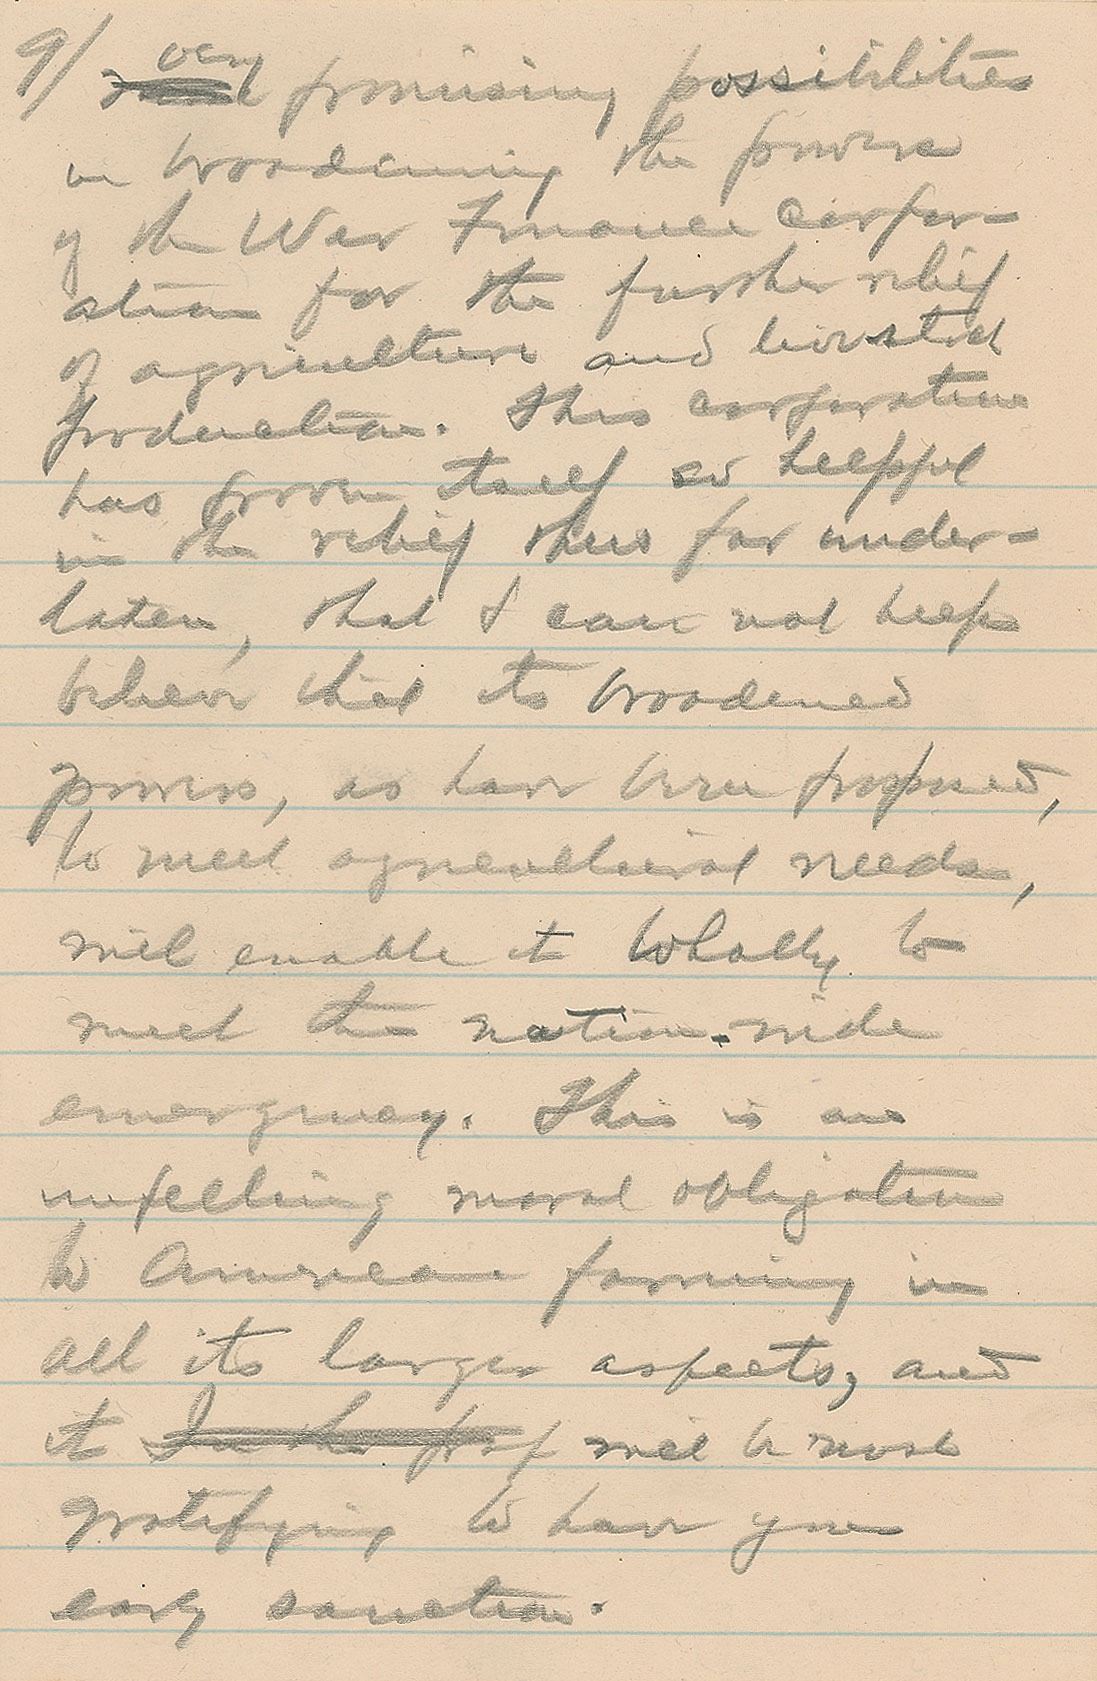 9/ very promising possibilities
in broadening the powers
of the War Finance Corpor-
ation for the further relief
of agriculture and livestock
production. This corporation
has proven itself so helpful
in the relief thus far under-
taken, that I can not help
believe that its broadened
powers, as have been proposed,
to meet agricultural needs,
will enable it wholly to
meet the nation-wide
emergency. This is an
impelling moral obligation
to American farming in
all its larger aspects, and
it In the prop will be most
gratifying to have your
early sanction.